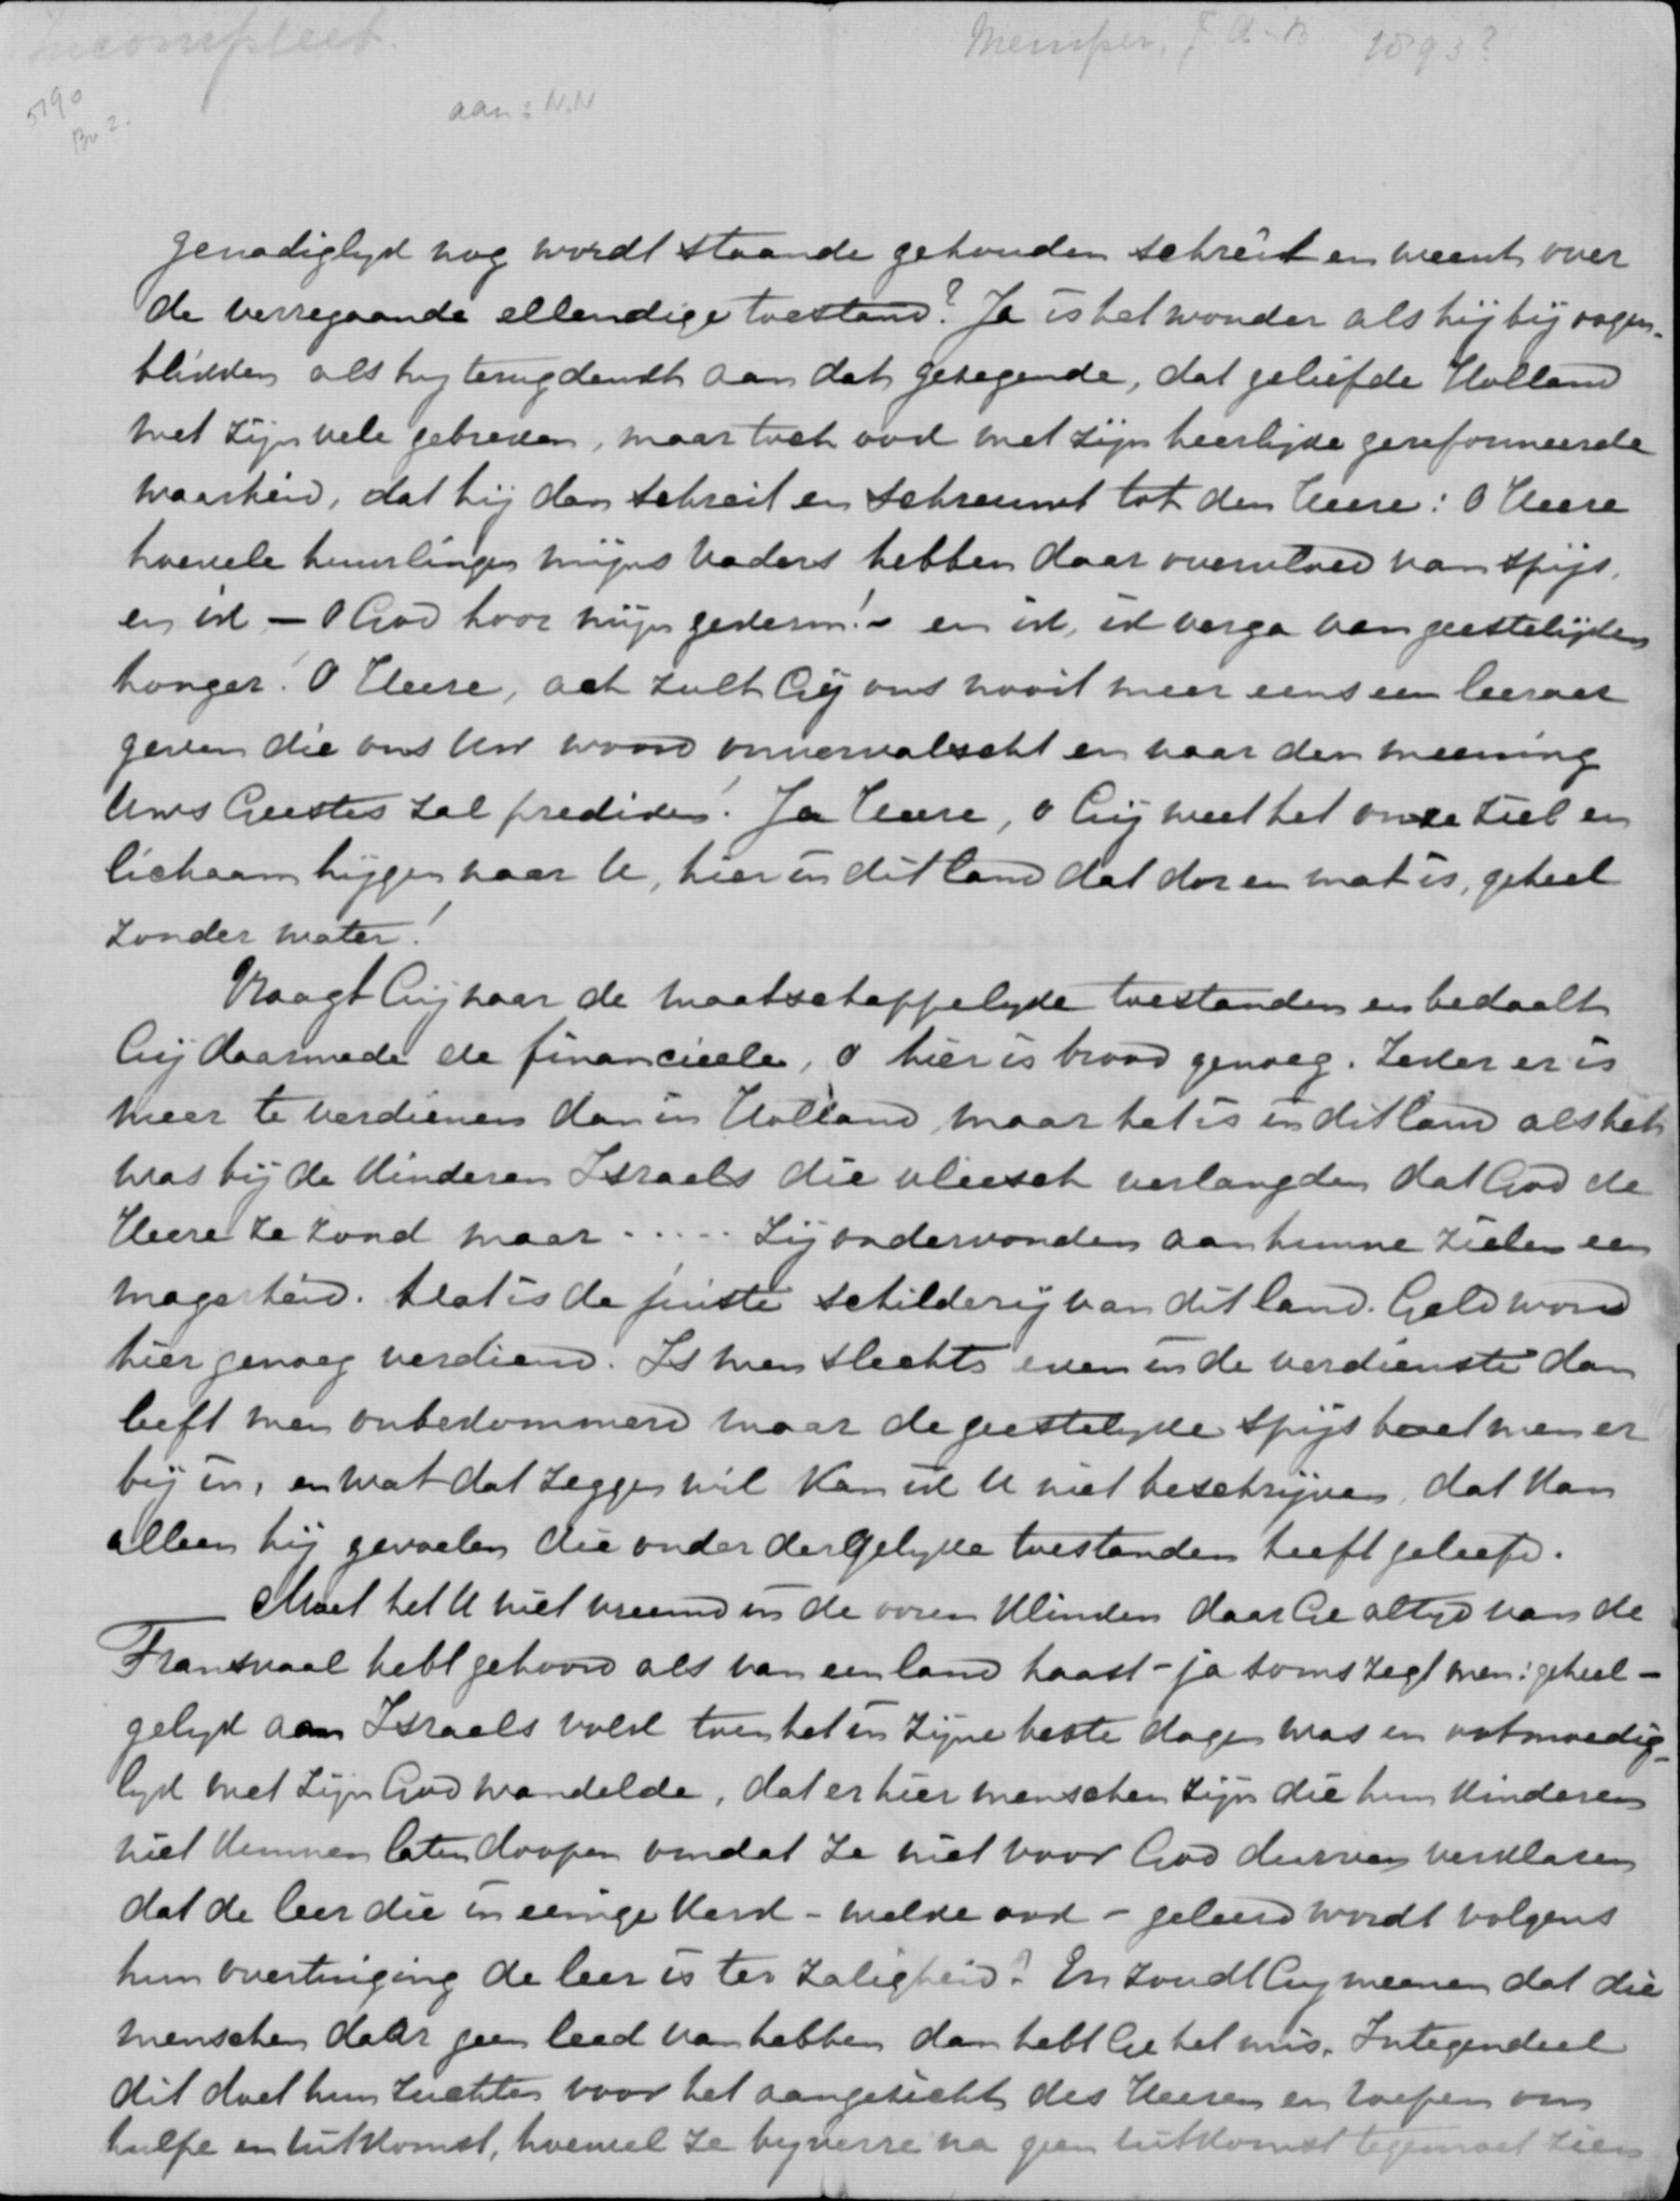 Incompleet.
Memper, F A-B 1893?
5190
Bu 2.
aan: N.N
genadiglyk nog wordt staande gehouden schreit en weent over
de verregaande ellendige toestand? Ja is het wonder als hij bij oogen-
blikken als hy terugdenkt aan dat gezegende, dat geliefde Holland
met zijn vele gebreken, maar toch ook met zijn heerlijke gereformeerde
waarheid, dat hij dan schreit en schreeuwt tot den Heere: O Heere
hoevele huurlingen mijns Vaders hebben daar overvloed van spijs,
en ik - O God hoor mijn gekerm! - en ik, ik verga van geestelijken
honger! O Heere, ach zult Gij ons nooit meer eens een leeraar
geven die ons Uw woord onvervalscht en naar den meening
Uws Geestes zal prediken! Ja Heere, o Gij weet het onze ziel en
lichaam hijgen naar U, hier in dit land dat dor en mat is, geheel
zonder water!
Vraagt Gij naar de maatschappelyke toestanden en bedoelt
Gij daarmede de financieele, o hier is brood genoeg. Zeker er is
meer te verdienen dan in Holland maar het is in dit land als het
was bij de Kinderen Israels die vleesch verlangden dat God de
Heere ze zond maar ..... Zij ondervonden aan hunne zielen een
magerheid. Dat is de juiste schilderij van dit land. Geld word
hier genoeg verdiend. Is men slechts even in de verdienste dan
leeft men onbekommerd maar de geestelyke spijs boet men er
bij in, en wat dat zeggen wil Kan ik U niet beschrijven, dat Kan
alleen hij gevoelen die onder dergelyke toestanden heeft geleefd.
Moet het U niet vreemd in de ooren Klinken daar Ge altyd van de
Transvaal hebt gehoord als van een land haast - ja soms zegt men: geheel -
gelyk aan Israels volk toen het in zijne beste dagen was en ootmoedig-
lyk met zijn God wandelde, dat er hier menschen zijn die hun Kinderen
niet Kunnen laten doopen omdat ze niet voor God durven verklaren
dat de leer die in eenige Kerk - welke ook - geleerd wordt volgens
hun overtuiging de leer is ter zaligheid? En zoudt Gij meenen dat die
menschen daar geen leed van hebben dan hebt Ge het mis. Integendeel
dit doet hun zuchten voor het aangezicht des Heeren en roepen om
hulpe en uitkomst, hoewel ze byverre na geen uitkomst tegemoet zien